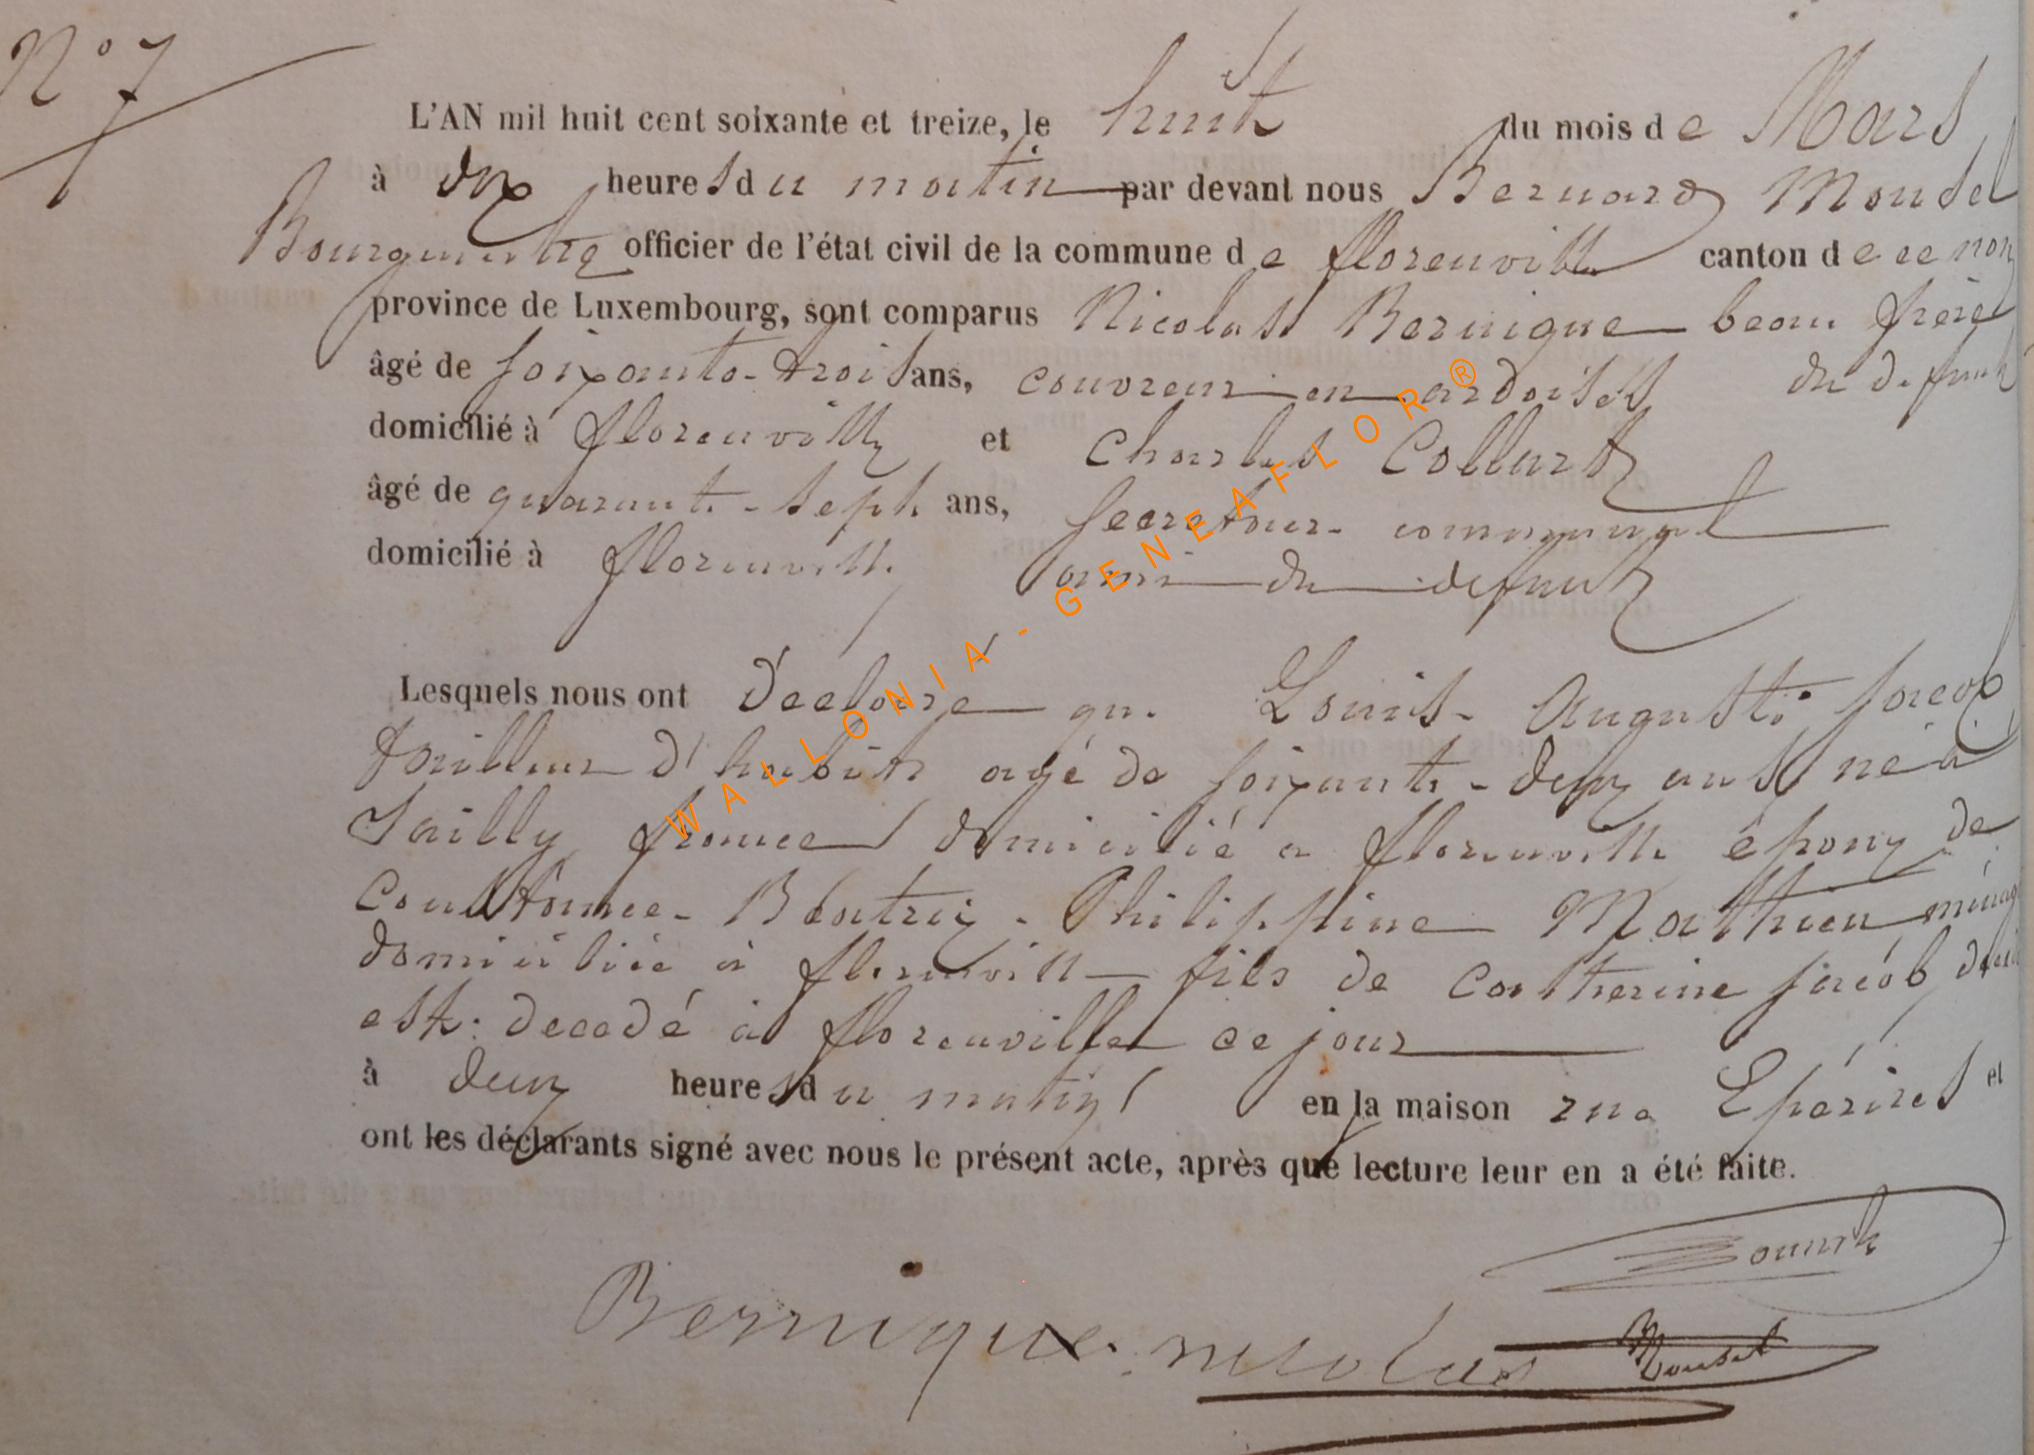 N° 7
L'AN mil huit cent soixante et treize, le huit du mois de Mars
à dix heures du matin par devant nous Bernard Mousel
Bourgmestre officier de l'état civil de la commune de florenville canton de ce nom
province de Luxembourg, sont comparus Nicolas Bernique beau frère
âgé de soixante-trois ans, couvreur en ardoises du defunt
domicilié à florenville et Charles Collart
âgé de quarante-sept ans, secretaire communal
domicilié à florenville ami du defunt
Lesquels nous ont déclaré que Louis Auguste Jacob
tailleur d'habits agé de soixante-deux ans né à
Sailly france domicilié à florenville époux de
Constance Béatrix Philippine Mathieu ménag
domiciliée à florenville fils de Catherine Jacob
est decedé à florenville ce jour
à deux heures du matin en la maison rue Epérires et
ont les déclarants signé avec nous le présent acte, après que lecture leur en a été faite.
Bernique nicolas
Mousel
WALLONIA - GENEAFLOR ®